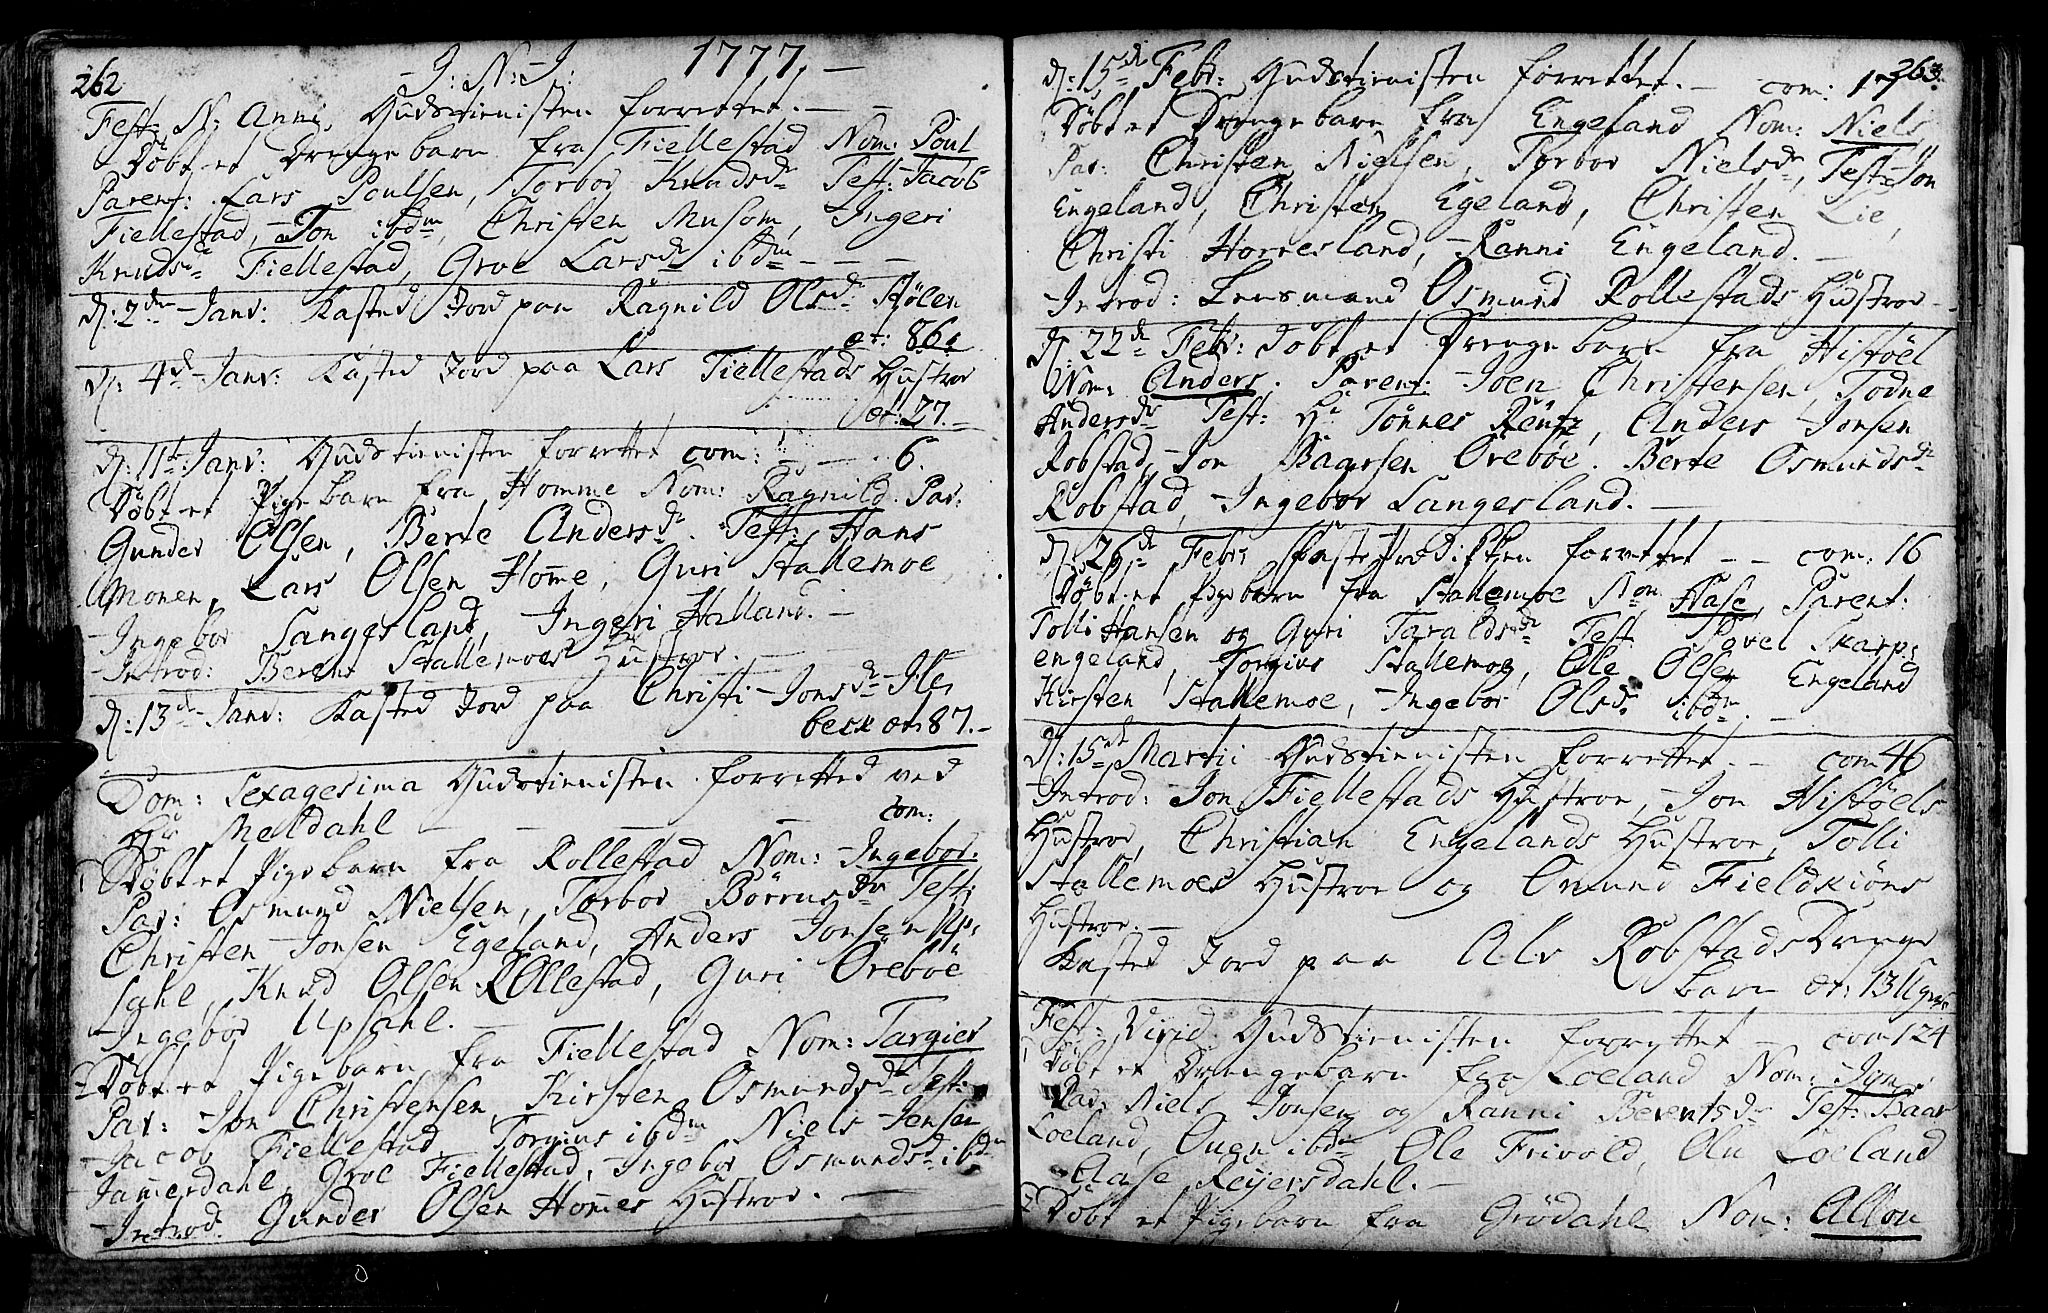 262
J: N: J: 1777. —
Fest: N: Anni, Gudstienisten forrettet. — —
Døbt et Drenge barn fra Fiellestad Nom: Poul
Parent: Lars Poulsen, Torbor Knudsdr Test: Jacob
Fiellestad, Jon ibdm, Christen Musom, Ingeri
Knudsdr Fiellestad, Groe Larsdr ibdm — — —
d: 2den Janv: Kasted Jord paa Ragnild Olsdr Stølen
æt: 86.
d: 4de Janv: Kasted Jord paa Lars Fiellestads Hustroe
æt: 27. —
d: 11te Janv: Gudstienisten forrettet com: — — 6.
Døbt et Pigebarn fra Homme Nom: Ragnild. Par:
Gunder Olsen, Berte Andersdr. Test: Hans
Monen, Lars Olsen Home, Guri Stallemoe,
Ingebor Langesland, Ingeri Halland. —
Introd: Berent Stallemoes Hustroe. —
d: 13de Janv: Kasted Jord paa Christi Jonsdr Ile-
beck æt: 87. —
Dom: Sexagesima Gudstienisten forretted ved
Hr Meldahl — — — — com:
1) Døbt et Pigebarn fra Rollestad Nom: Ingebor.
Par: Osmund Nielsen, Torbor Børrusdr Test:
Christen Jonsen Egeland, Anders Jonsen Up-
sahl, Knud Olsen Rollestad, Guri Ørebøe
Ingebor Upsahl. —
2 Døbt et Pigebarn fra Fiellestad Nom: Targier
Par: Jon Christensen, Kirsten Osmundsdr Test:
Jacob Fiellestad Torgius ibdm Niels Jensen
Jamerdahl, Groe Fiellestad, Ingebor Osmundsdr ibdm
Introd: Gunder Olsen Homes Hustroe. —
263.
d: 15de Febr: Gudstienisten forrettet. — com: 17
Døbt et Drengebarn fra Engeland Nom: Niels
Par: Christen Nielsen, Torbor Nielsdr, Test: Jon
Engeland, Christen Egeland, Christen Lie,
Christi Horresland, Ranni Engeland. —
Introd: Lensmand Osmund Rollestads Hustroe —
d: 22de Febr: Døbt et Drengebarn fra Histøel
Nom: Anders. Parent: Joen Christensen, Todne
Andersdr Test: Hr Tønnes Rentz, Anders Jonsen
Robstad, Jon Baarsen Ørebøe. Berte Osmundsdr
Robstad, Ingebor Langesland. —
d: 26de Febr Fasteprædikken forrettet — — com: 16
Døbt et Pigebarn fra Stallemoe Nom Aase, Parent:
Tolli Hansen og Guri Taraldsdr Test Povel Skarp-
engeland, Torgius Stallemoe, Ole Olsen Engeland
Kirsten Stallemoe, Ingebor Olsdr ibdm. —
d: 15de Martii Gudstienisten forrettet. — com 46
Introd: Jon Fiellestads Hustroe, Jon Histøels
Hustroe, Christian Engelands Hustroe, Tolli
Stallemoes Hustroe og Omund Fieldkiøns
Hustroe. —
Kasted Jord paa Alv Robstads Drenge
barn æt: 13 Uger
Fest: Virid. Gudstienisten forrettet — com 124
1 Døbt et Drengebarn fra Loeland Nom: Jon.
Par: Niels Jonsen og Ranni Berentsdr Test: Baar
Loeland, Ouen ibdm Ole Trivold, Olu Loeland
Aase Reiersdahl. —
2 Døbt et Pigebarn fra Grødahl Nom: Allou